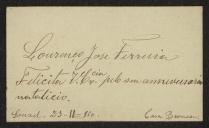 Lourenço José Ferreira
Felicita V. Excia pelo seu anniversario
natalicio.
23-11-910. Casa